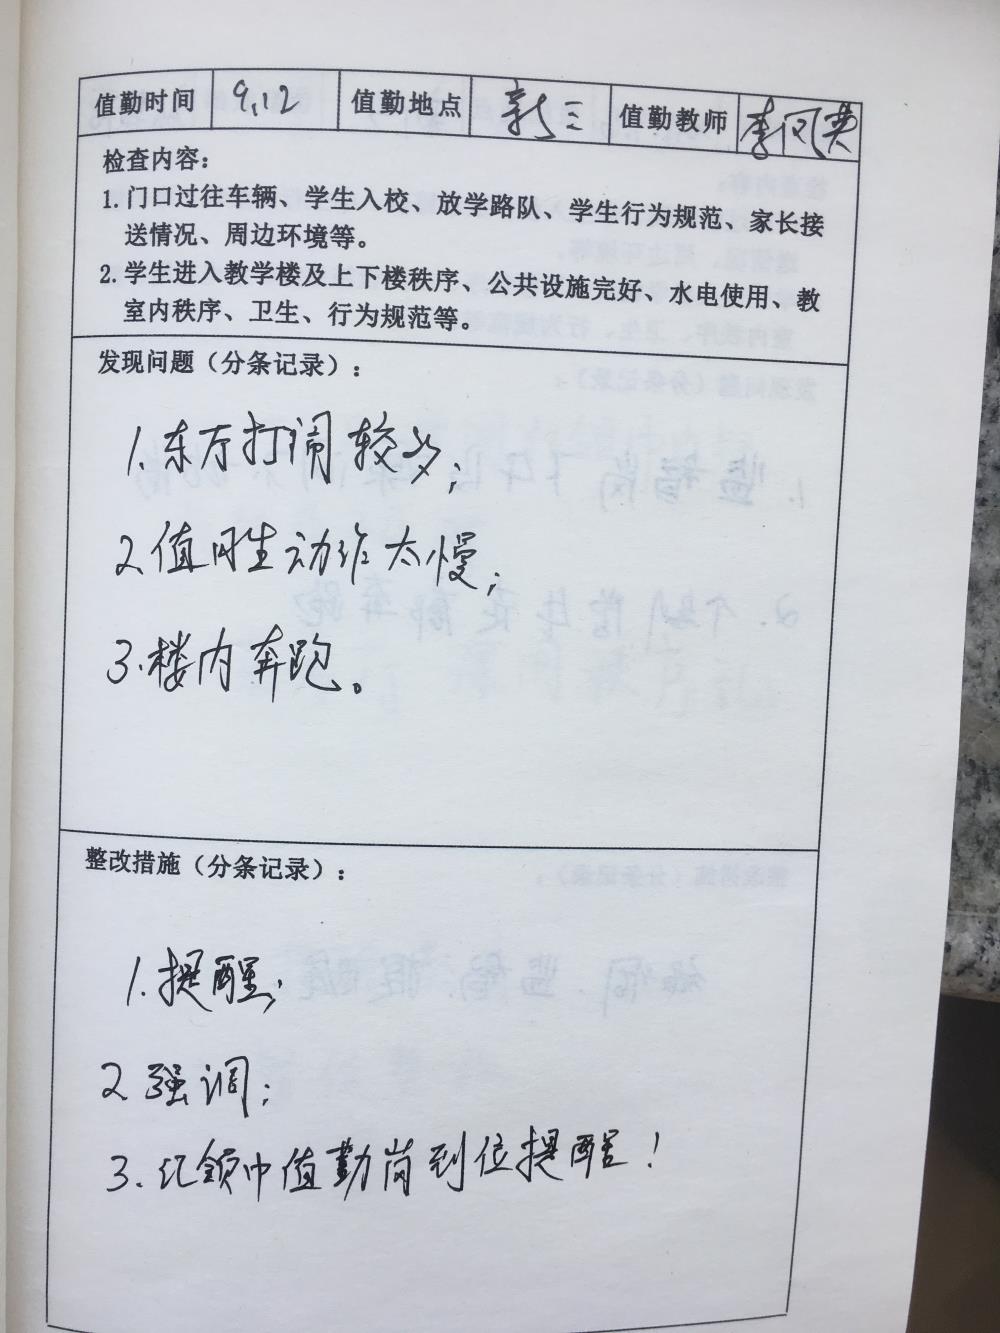 值勤时间 9.12 值勤地点 新三 值勤教师 李凤英
检查内容：
1. 门口过往车辆、学生入校、放学路队、学生行为规范、家长接
送情况、周边环境等。
2. 学生进入教学楼及上下楼秩序、公共设施完好、水电使用、教
室内秩序、卫生、行为规范等。
发现问题（分条记录）：
1. 东厅打闹较多；
2. 值日生动作太慢；
3. 楼内奔跑。
整改措施（分条记录）：
1. 提醒；
2 强调；
3. 红领巾值勤岗到位提醒！